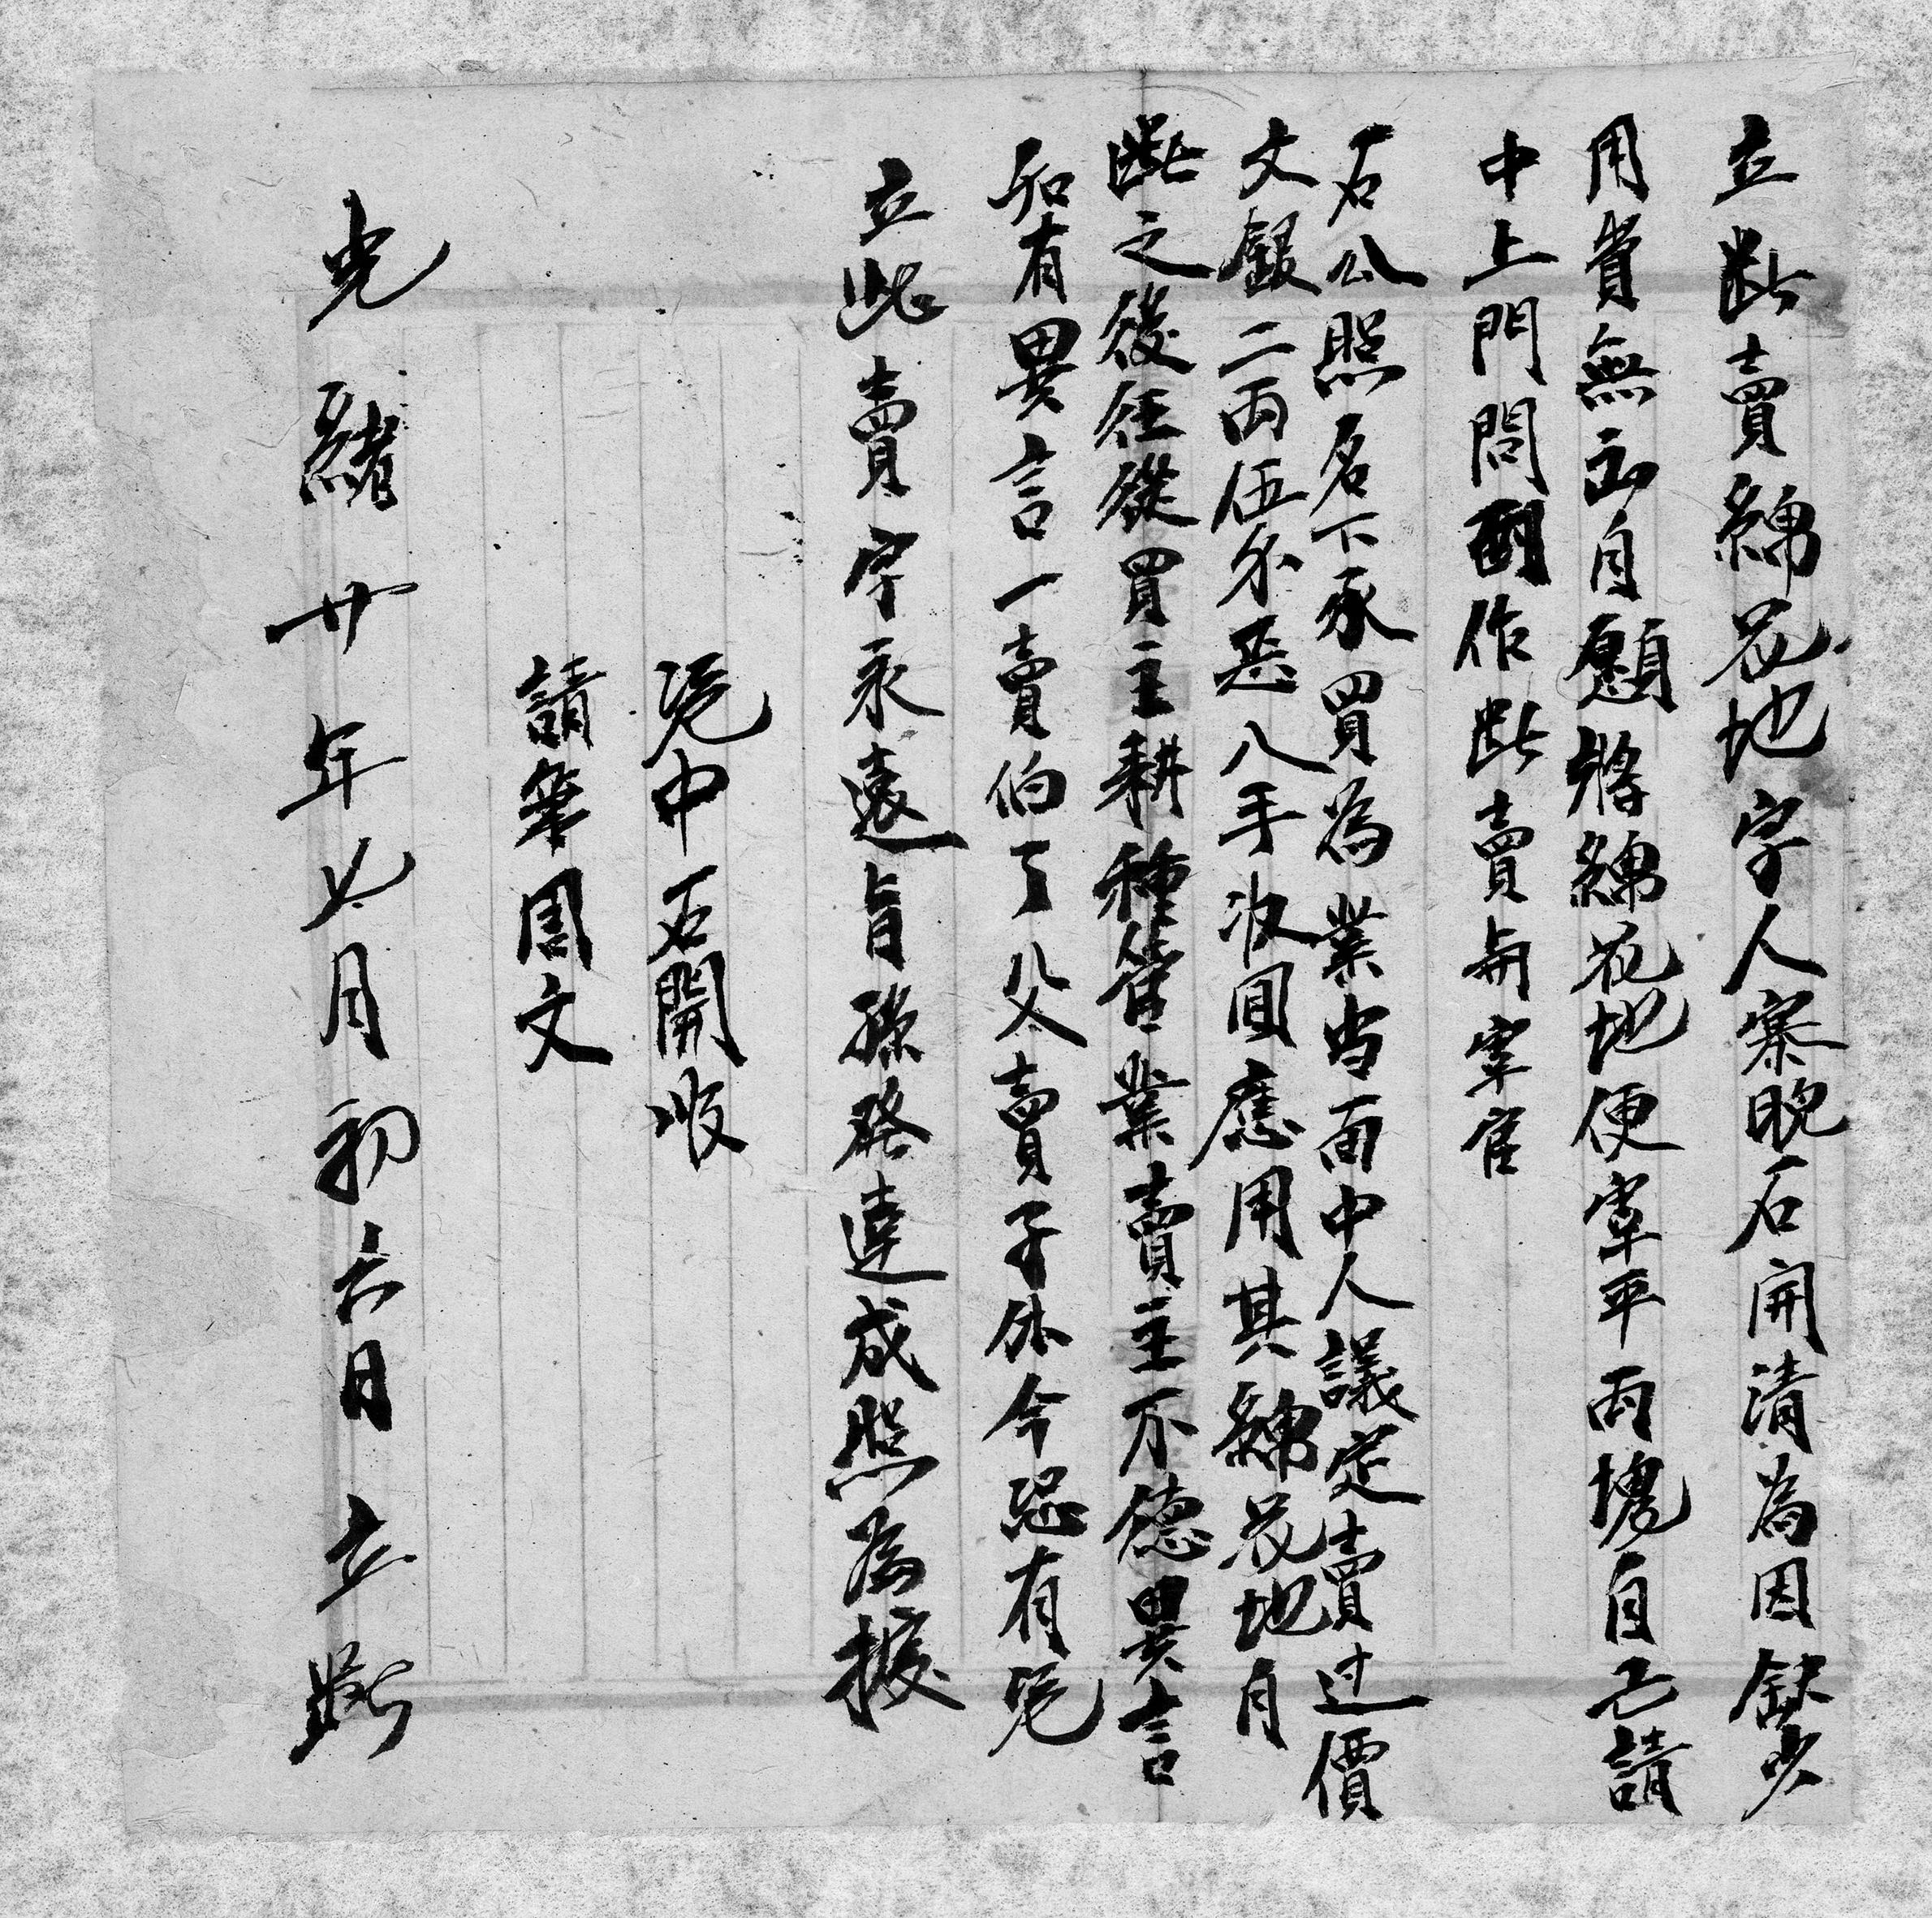 立斷賣綿花地字人寨晚石開清為因缺少
用費無出自願將綿花地便寨平兩塊自己請
中上門問到作斷賣與寨官
石公照名下承買為業当面中人議定賣过價
文銀二兩伍分恶八手收囬應用其綿花地自
斷之後任從買主耕種管業賣主不德異言
知有異言一賣伯了父賣子休今恐有凴
立此賣字永遠旨孫發達成照為據
凴中石開收
請筆周文
光緒廿年七月初六日立斷